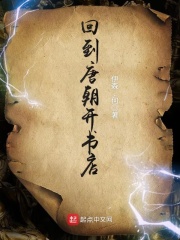 回到唐朝开书店
起点中文网